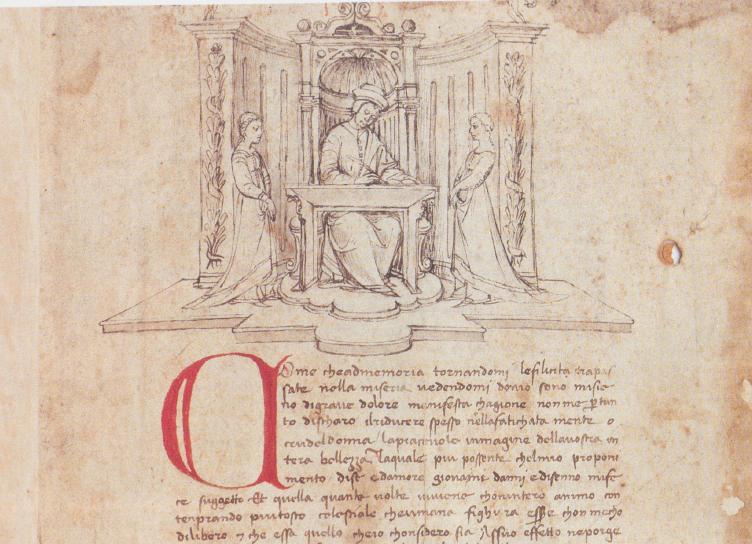 Ome cheadmemoria tornandomi lefilicita trapas
sate nella miseria vedendomi dovio sono misie
no digrave dolore manifesta chagione nonme ꝑ tan
to discharo ilriducere spesso nellafatichata mente o
crudel donna lapiacievole inmagine dellavostra in
tera bellezza laquale piu possente chelmio proponi
mento dise edamore giovane danni edisenno mife
ce suggetto Et quella quante volte mi viene chointero animo con
tenprando piutosto celestiale cheumana fighura essere chon mecho
dilibero et che essa quello cheio chonsidero sia Assuo effetto neporge